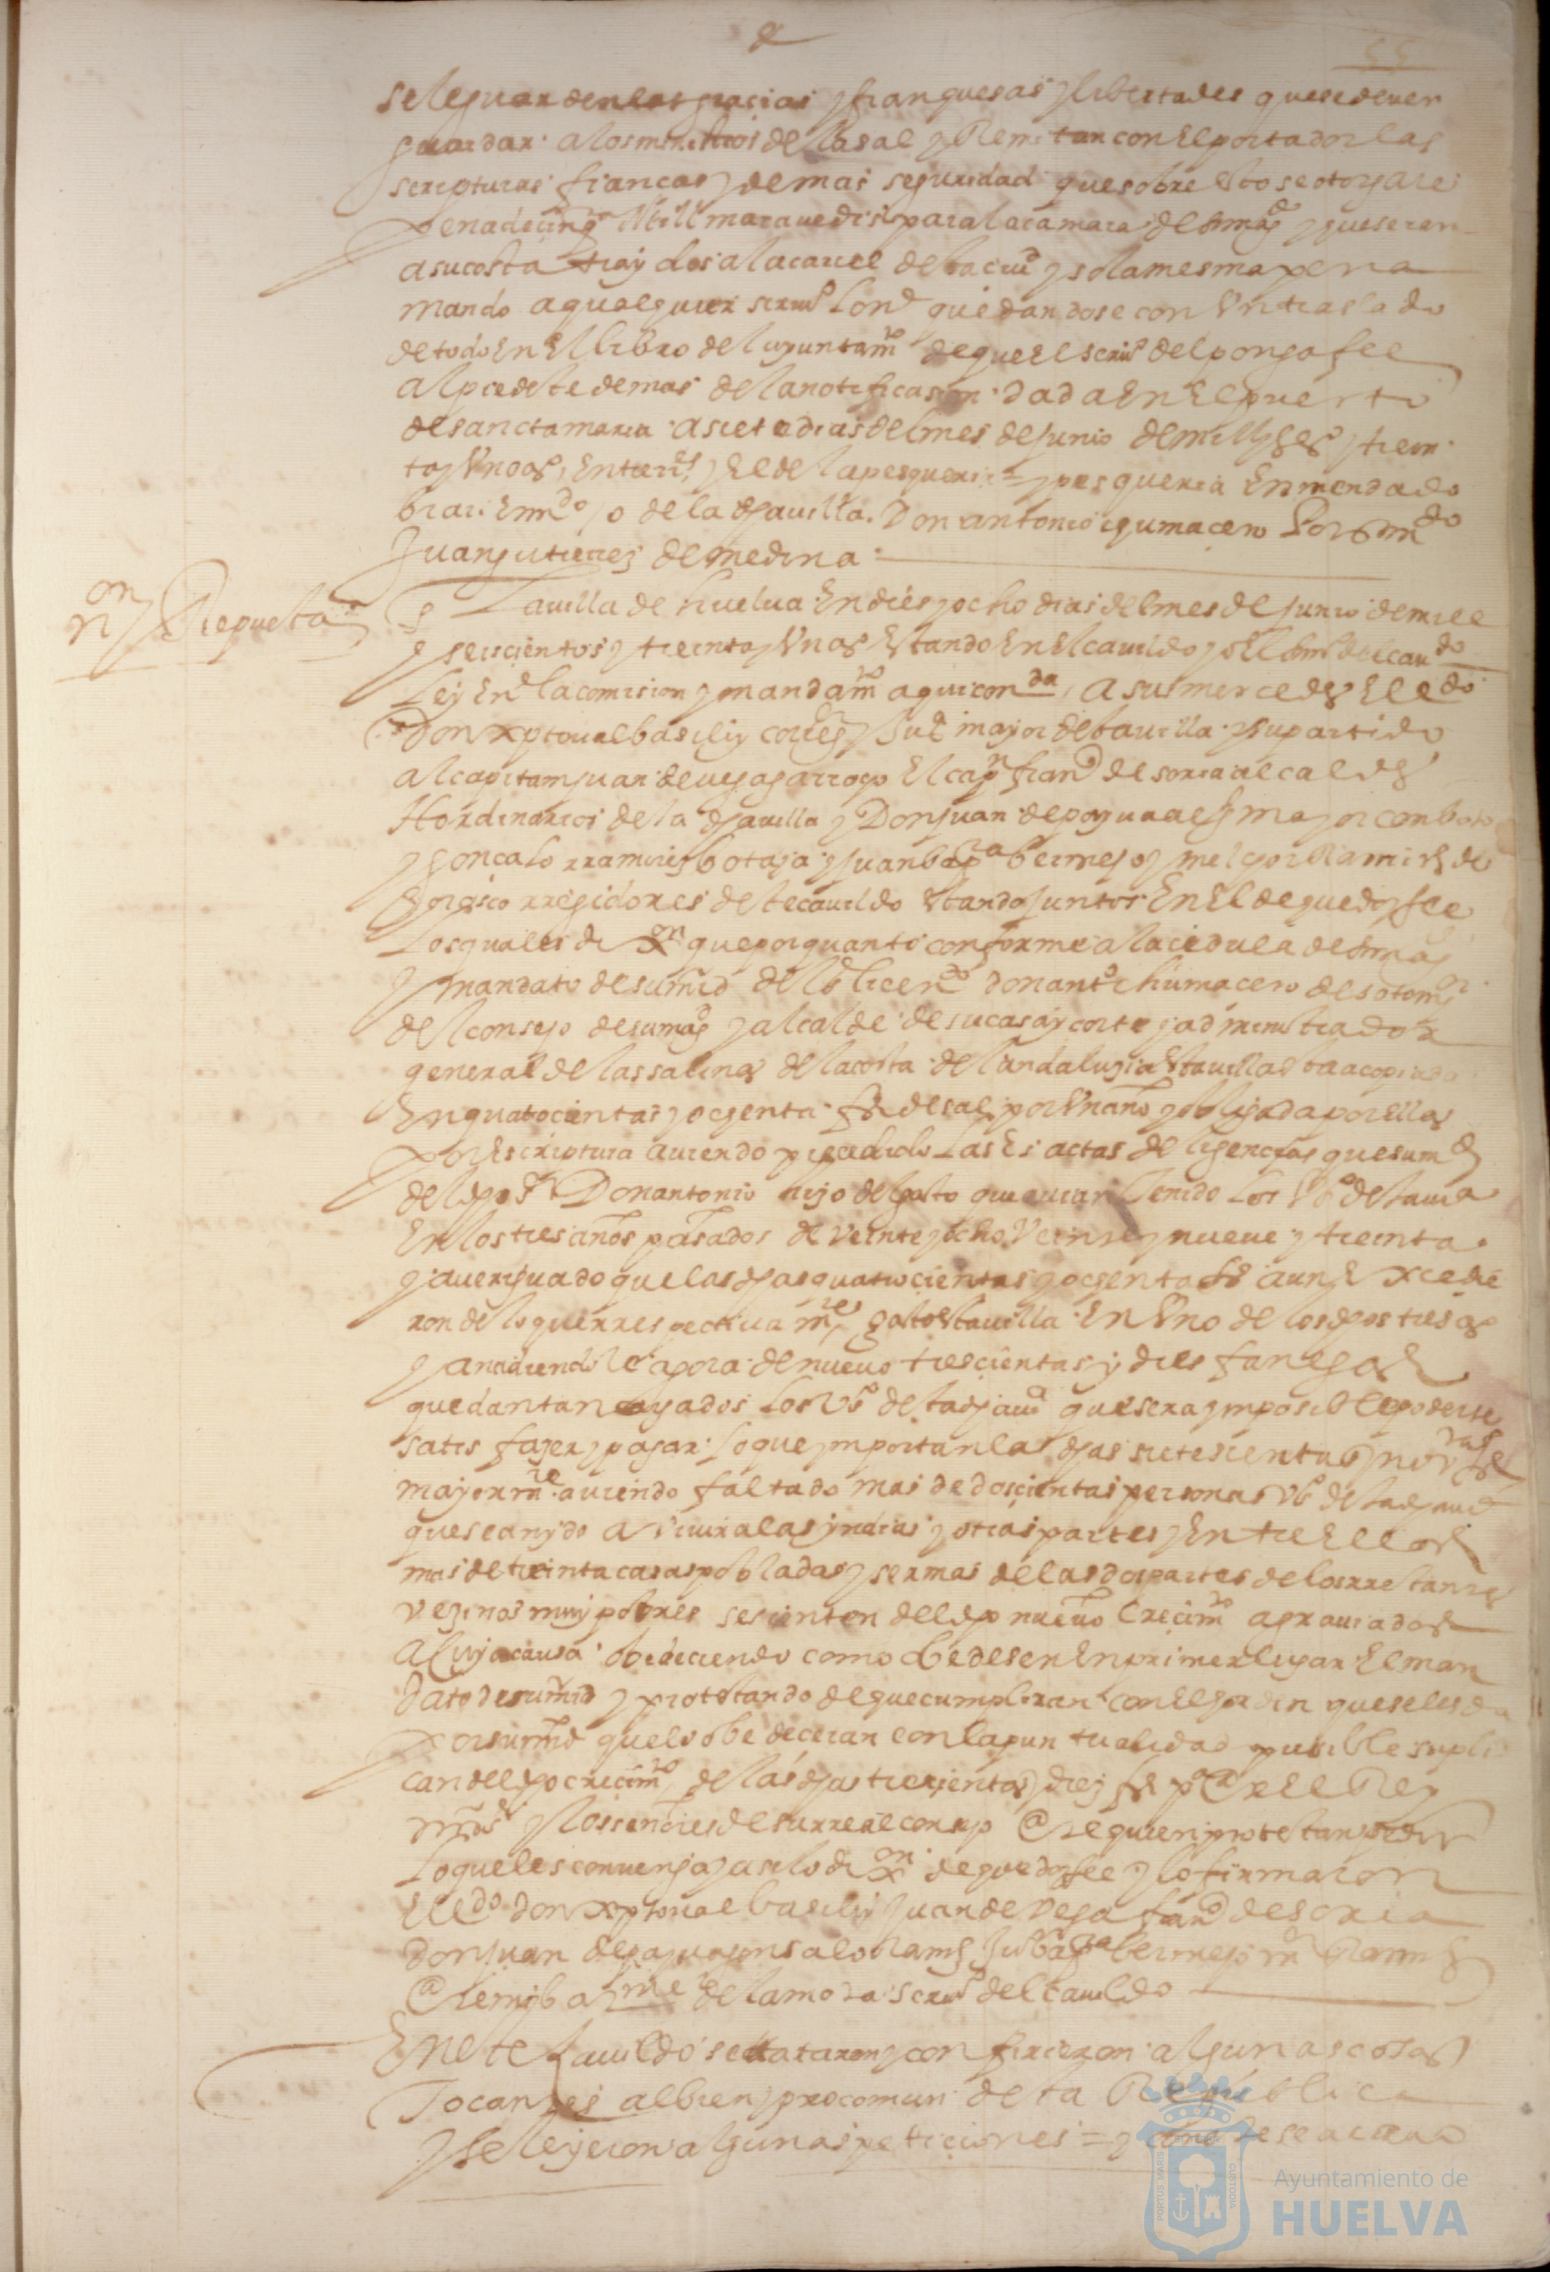 55
se le guarden las gracias y franquesas y libertades que se deven
guardar a los ministros de la sal y Remitan con El portador las
scripturas fiancas y demas seguridad que sobre esto se otorgare
pena de cinqta Mill maravedis para la camara de su magd y que seran
a su costa traydos a la carcel desta ciud y so la mesma pena
mando a qualquier scrivo lo no quedandose con Un traslado
de todo En El libro del ayuntamto de que El scrivo del ponga fee
al pie deste demas de la notificasion dada En El puerto
de sancta maria a siete dias del mes de junio de mill y ss y trein
ta y Un as Entrer y El de la pesqueria = y pesqueria Enmendado
Enmdo o de la dha villa. Don antonio cgumacero Por su mdo
Juan gutierrez de medina
non y Repuesta
En La villa de huelva En dies y ocho dias del mes de junio de mill
y seiscientos y treinta y Un as Estando En El cavildo yo El scrivo del cavdo
ley E no la comision y mandamto aqui conda a sus mercedes El ldo
Don xptoval basilio cortes Jues mayor desta villa y su partido
al capitan juan de vega garrogo El capn franco de soria alcaldes
Hordinarios de la dha villa y Don juan de alguasil mayor con boto
y goncalo rramires botaja y juan bapta bermejo y melchor Ramires de
regidores deste cavildo Estando juntos En El de que doy fee
Los quales dixon que por quanto conforme a la cedula de su magd
y mandato de su md del sr licendo don anto chumacero de sotomor
del consejo de su magd y alcalde de su casa y corte y administrador
general de las salinas de la costa del andaluzia Esta villa Esta acopiada
En quatocientas y ochenta fs de sal por Un año y obligada por Ellas
por Escriptura aviendo precedido las Es actas deligencias que su md
del dho sr Don antonio hijo del gasto que avian Tenido Los Vos desta villa
En los tres años pasados de veinte y ocho Veinte y nueve y treinta
y averiguado que las dhas quatrocientas y ochenta fs aun Excedie
ron de lo que rrespectivamte gasto Esta villa En Uno de los dhos tres as
y anadiendole agora de nuevo trescientas y dies fanegas
quedan tan cargados Los Vos desta dha villa que sera ymposible poderse
satis fazer y pagar lo que ymportan las dhas setescientas y noventa fs
mayormte aviendo faltado mas de doscientas personas Vos desta dha villa
que se an ydo a vivir a las yndias y otras partes y Entre Ellos
mas de treinta casas pobladas y ser mas de las dos partes de los rrestantes
vezinos muy pobres se sienten del dho nuevo Crecimto agraviados
A cuya causa obedeciendo como obedesen En primer lugar El man
dato de su md y protestando de que cumpliran con El horden que se les da
por su md que lo obedeceran con la puntualidad pusible supli
can del dho crecimto de las dhas trescientas y diez fs pa ante El Rey
nro sr y los señores de su rreal consejo E requieren protestan pedir
lo que les convenga y asi lo dixon de que doy fee y lo firmaron
El ldo don xptoval basilio juan de vega franco de soria
don juan de gonsalo Rams Ju bapta bermejo mr Ramis
Ante mi bar me de la mota scrivo del cavildo
En este Cavildo se trataron y confirieron algunas cosas
Tocantes al bien y procomun desta Republica
y se leyeron algunas peticiones = y con esto se acavo
PORTUS MARIS CUSTODIA
Ayuntamiento de
HUELVA